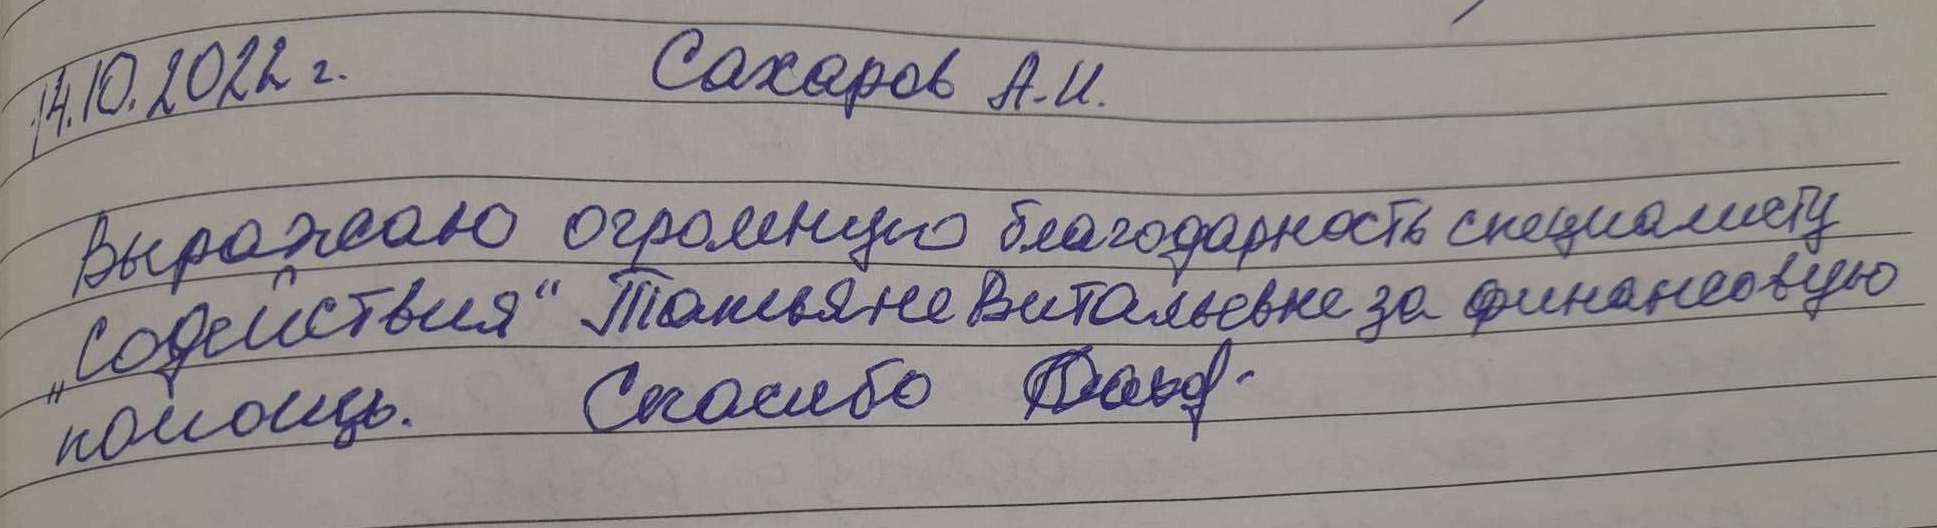 14.10.2022 г. Сахаров А.И.
Выражаю огромную благодарность специалисту
„Содействия“ Татьяне Витальевне за финансовую
помощь. Спасибо